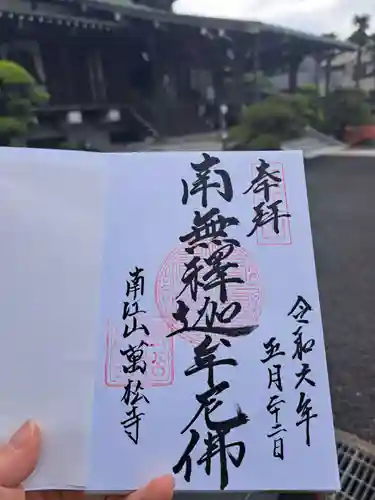 奉拝
令和六年
五月廿二日
南無釋迦牟尼佛
南江山萬松寺